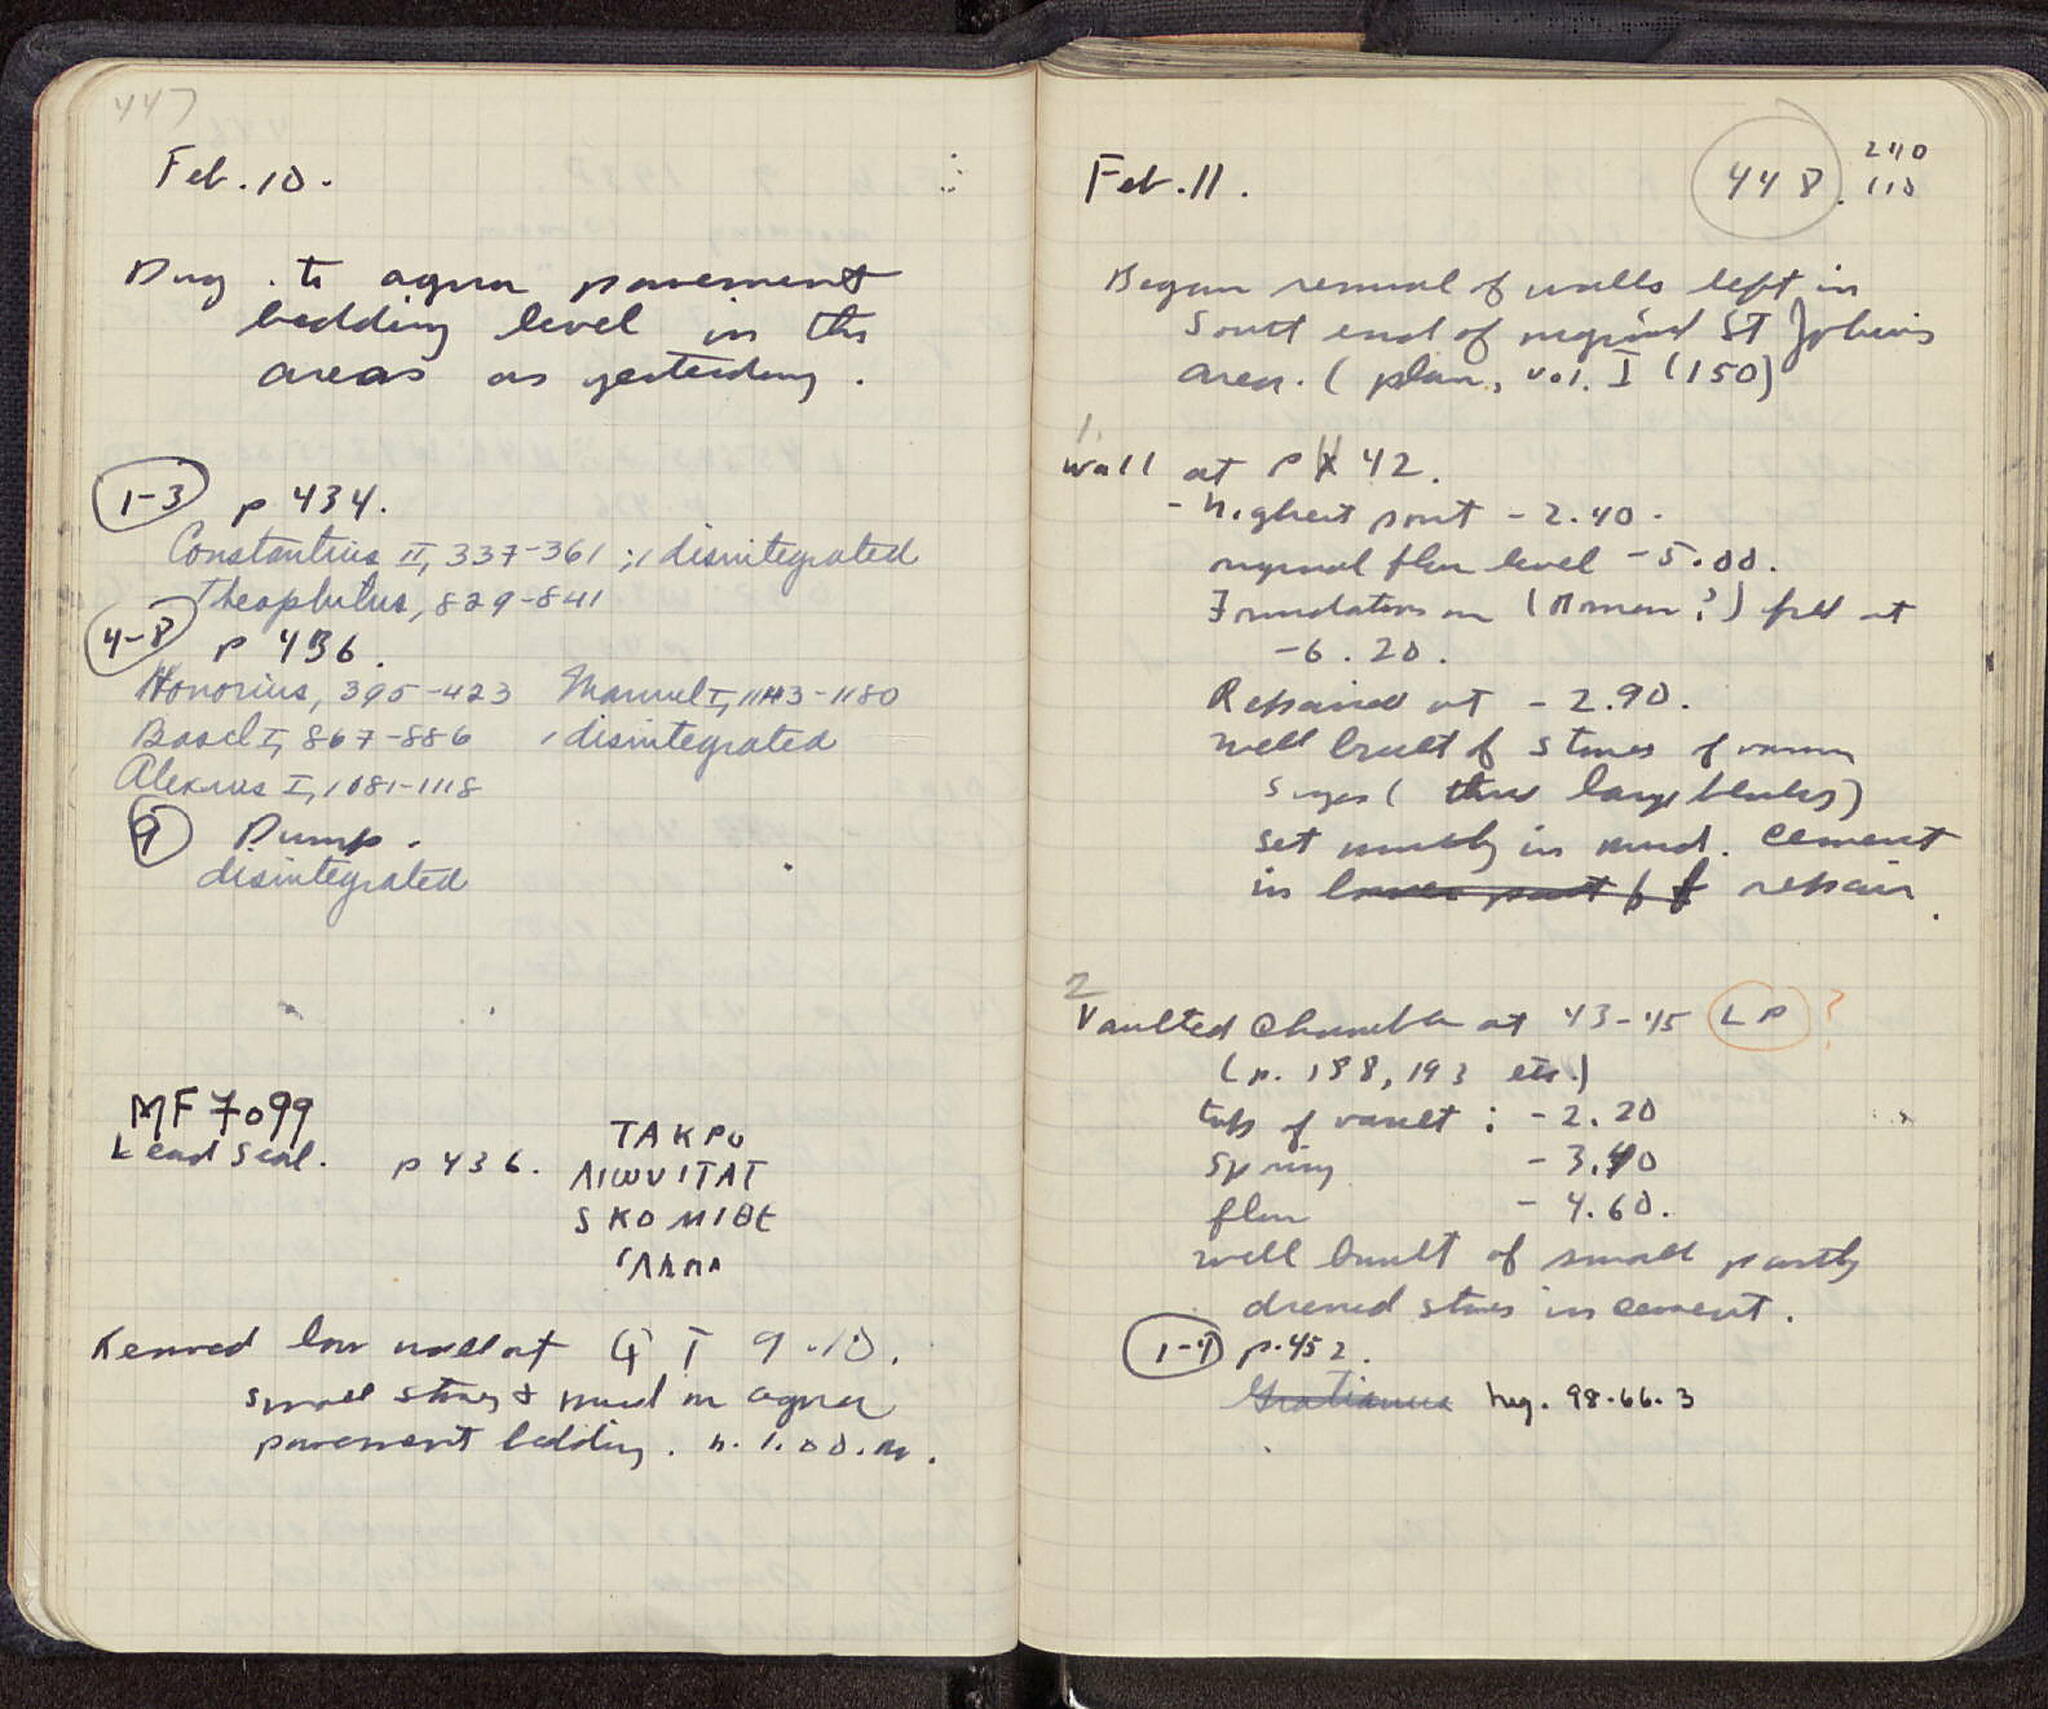 447
Feb. 10.
Dug to agora pavement
bedding level in the
areas as yesterday.
1-3 p 434.
Constantius II, 337-361 ; 1 disintegrated
Theophilus, 829-841
4-8 p 436.
Honorius, 395-423 Manuel I, 1143-1180
Basil I, 867-886 1 disintegrated
Alexius I, 1081-1118
9 Dump.
disintegrated
MF 7099
Lead Seal. p 436.
ΤΑΚΡΟ
ΛΙωVΙΤΑΤ
S ΚΟΜΙΘΕ
Removed low wall at T 9-10.
small stones & mud on agora
pavement bedding. h. 1.00.m.
Feb. 11. 448. 240
110
Began removal of walls left in
South end of original St John's
area. (plan, vol. I (150)
1.
Wall at p 42.
- highest point - 2.40.
original floor level - 5.00.
Foundations on (Roman?) fill at
-6.20.
Repaired at - 2.90.
well built of stones of various
sizes (three large blocks)
set mostly in mud. Cement
in lower part of repair.
2
Vaulted Chamber at 43-45 LP ?
(p. 188, 193 etc.)
top of vault : - 2.20
spring - 3.40
floor - 4.60.
well built of small partly
dressed stones in cement.
p. 452.
Gratianus neg. 98-66-3